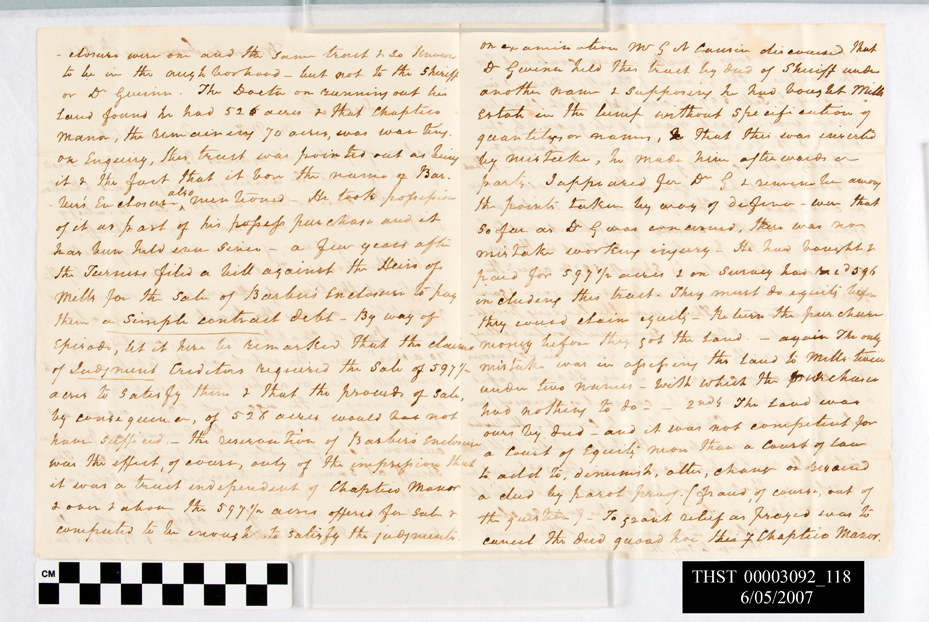 - closure were one and the same tract & so known
to be in the neighborhood - but not to the Sheriff
or Dr Gwinn. The Doctor on running out his
land found he had 526 acres & that Chaptico
Manor, the remaining 70 acres, was wanting.
on Enquiry, this tract was pointed out as being
it & the fact that it bore the name of Bar-
-ber's Enclosure, also mentioned - He took possession
of it as part of his purchase and it
has been held ever since - a few years after
the Turners filed a bill against the Heirs of
Mills for the sale of Barber's Enclosure to pay
them a simple contract debt - By way of
Episode, let it here be remarked that the claims
of Judgment Creditors required the sale of 597½
acres to satisfy them & that the proceeds of sale,
by consequence, of 526 acres would not
have sufficed - the reservation of Barber's Enclosure
was the effect, of course, only of the impression that
it was a tract independent of Chaptico Manor
& over & above the 597½ acres offered for sale &
computed to be enough to satisfy the judgments.
on examination Mr G N Causin discovered that
Dr Gwinn held this tract by deed of Sheriff under
another name & supposing he had bought Mills
Estate in the lump without specification of
quantity or names, & that this was inserted
by mistake, he made him afterwards a
party. I appeared for Dr G & remember among
the points taken by way of defence - were that
so far as Dr G was concerned, there was no
mistake working injury - He had bought &
paid for 597½ acres & on survey had 596
including this tract. They must do equity before
they could claim equity - Return the purchase
money before they got the land. - again The only
mistake was in assessing the land to Mills twice
under two names - with which the purchaser
had nothing to do - - 2ndly The land was
ours by deed - and it was not competent for
a Court of Equity more than a Court of law
to add to, diminish, alter, change or
a deed by parol proof. (fraud, of course, out of
the question) - To grant relief as prayed was to
cancel the deed quoad hoc, this 7 Chaptico Manor.
CM
THST 00003092_118
6/05/2007